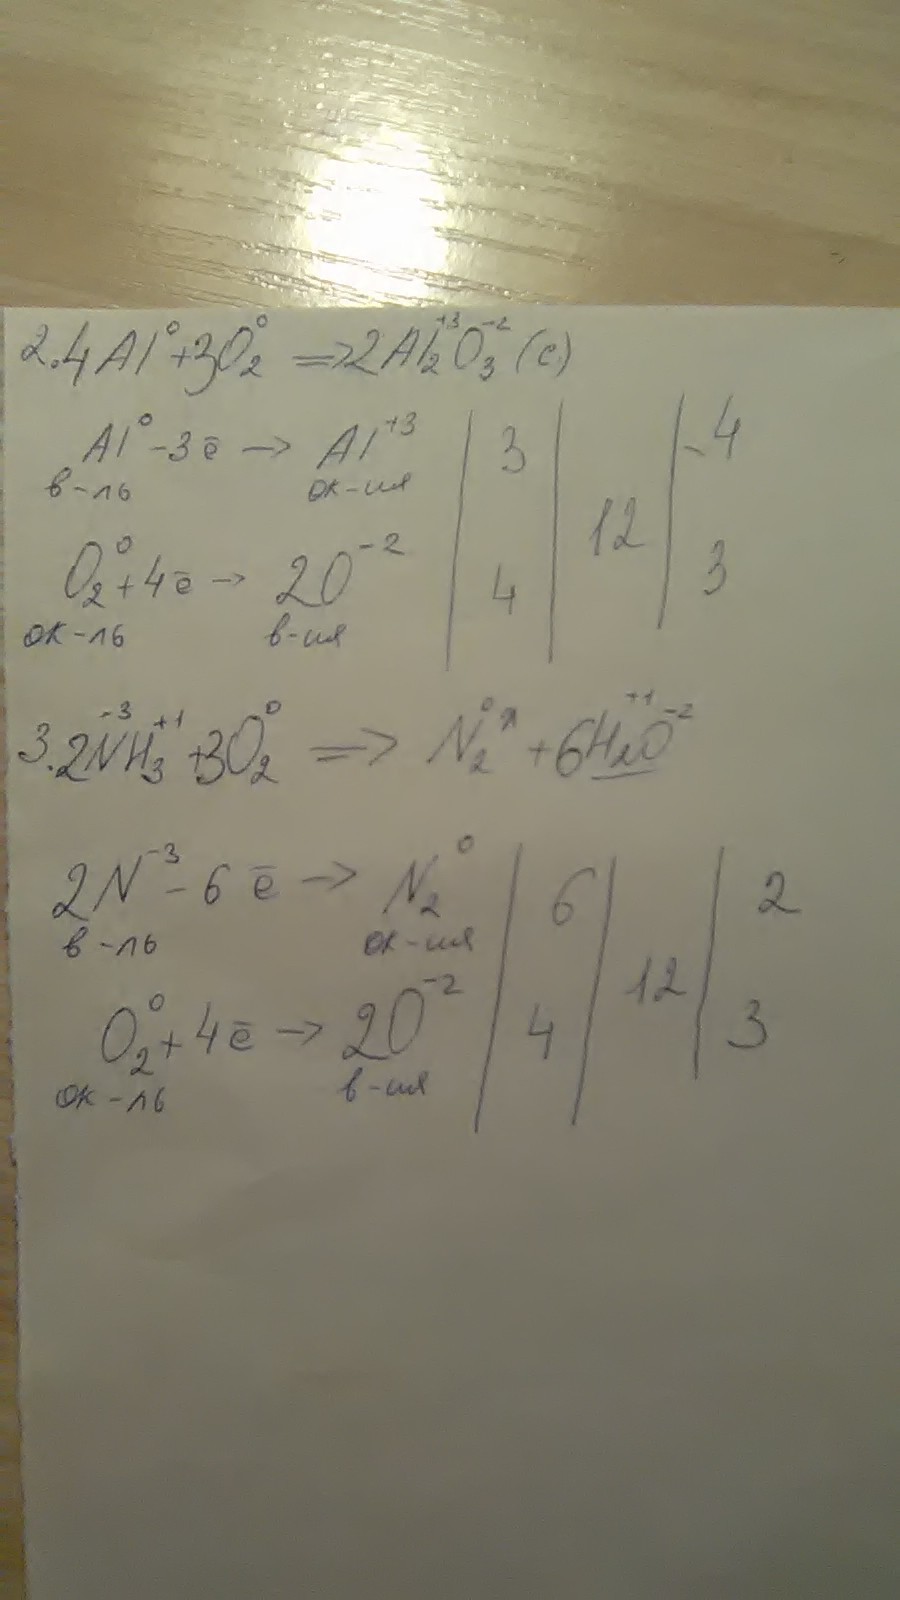 2. 4Al⁰ + 3O₂⁰ => 2Al₂⁺³O₃⁻² (с)
Al⁰ - 3ē → Al⁺³ | 3 | | 4
в-ль ок-ия
12
O₂⁰ + 4ē → 2O⁻² | 4 | | 3
ок-ль в-ия
3. 2N⁻³H₃⁺¹ + 3O₂⁰ => N₂⁰ + 6H₂⁺¹O⁻²
2N⁻³ - 6ē → N₂⁰ | 6 | | 2
в-ль ок-ия
12
O₂⁰ + 4ē → 2O⁻² | 4 | | 3
ок-ль в-ия